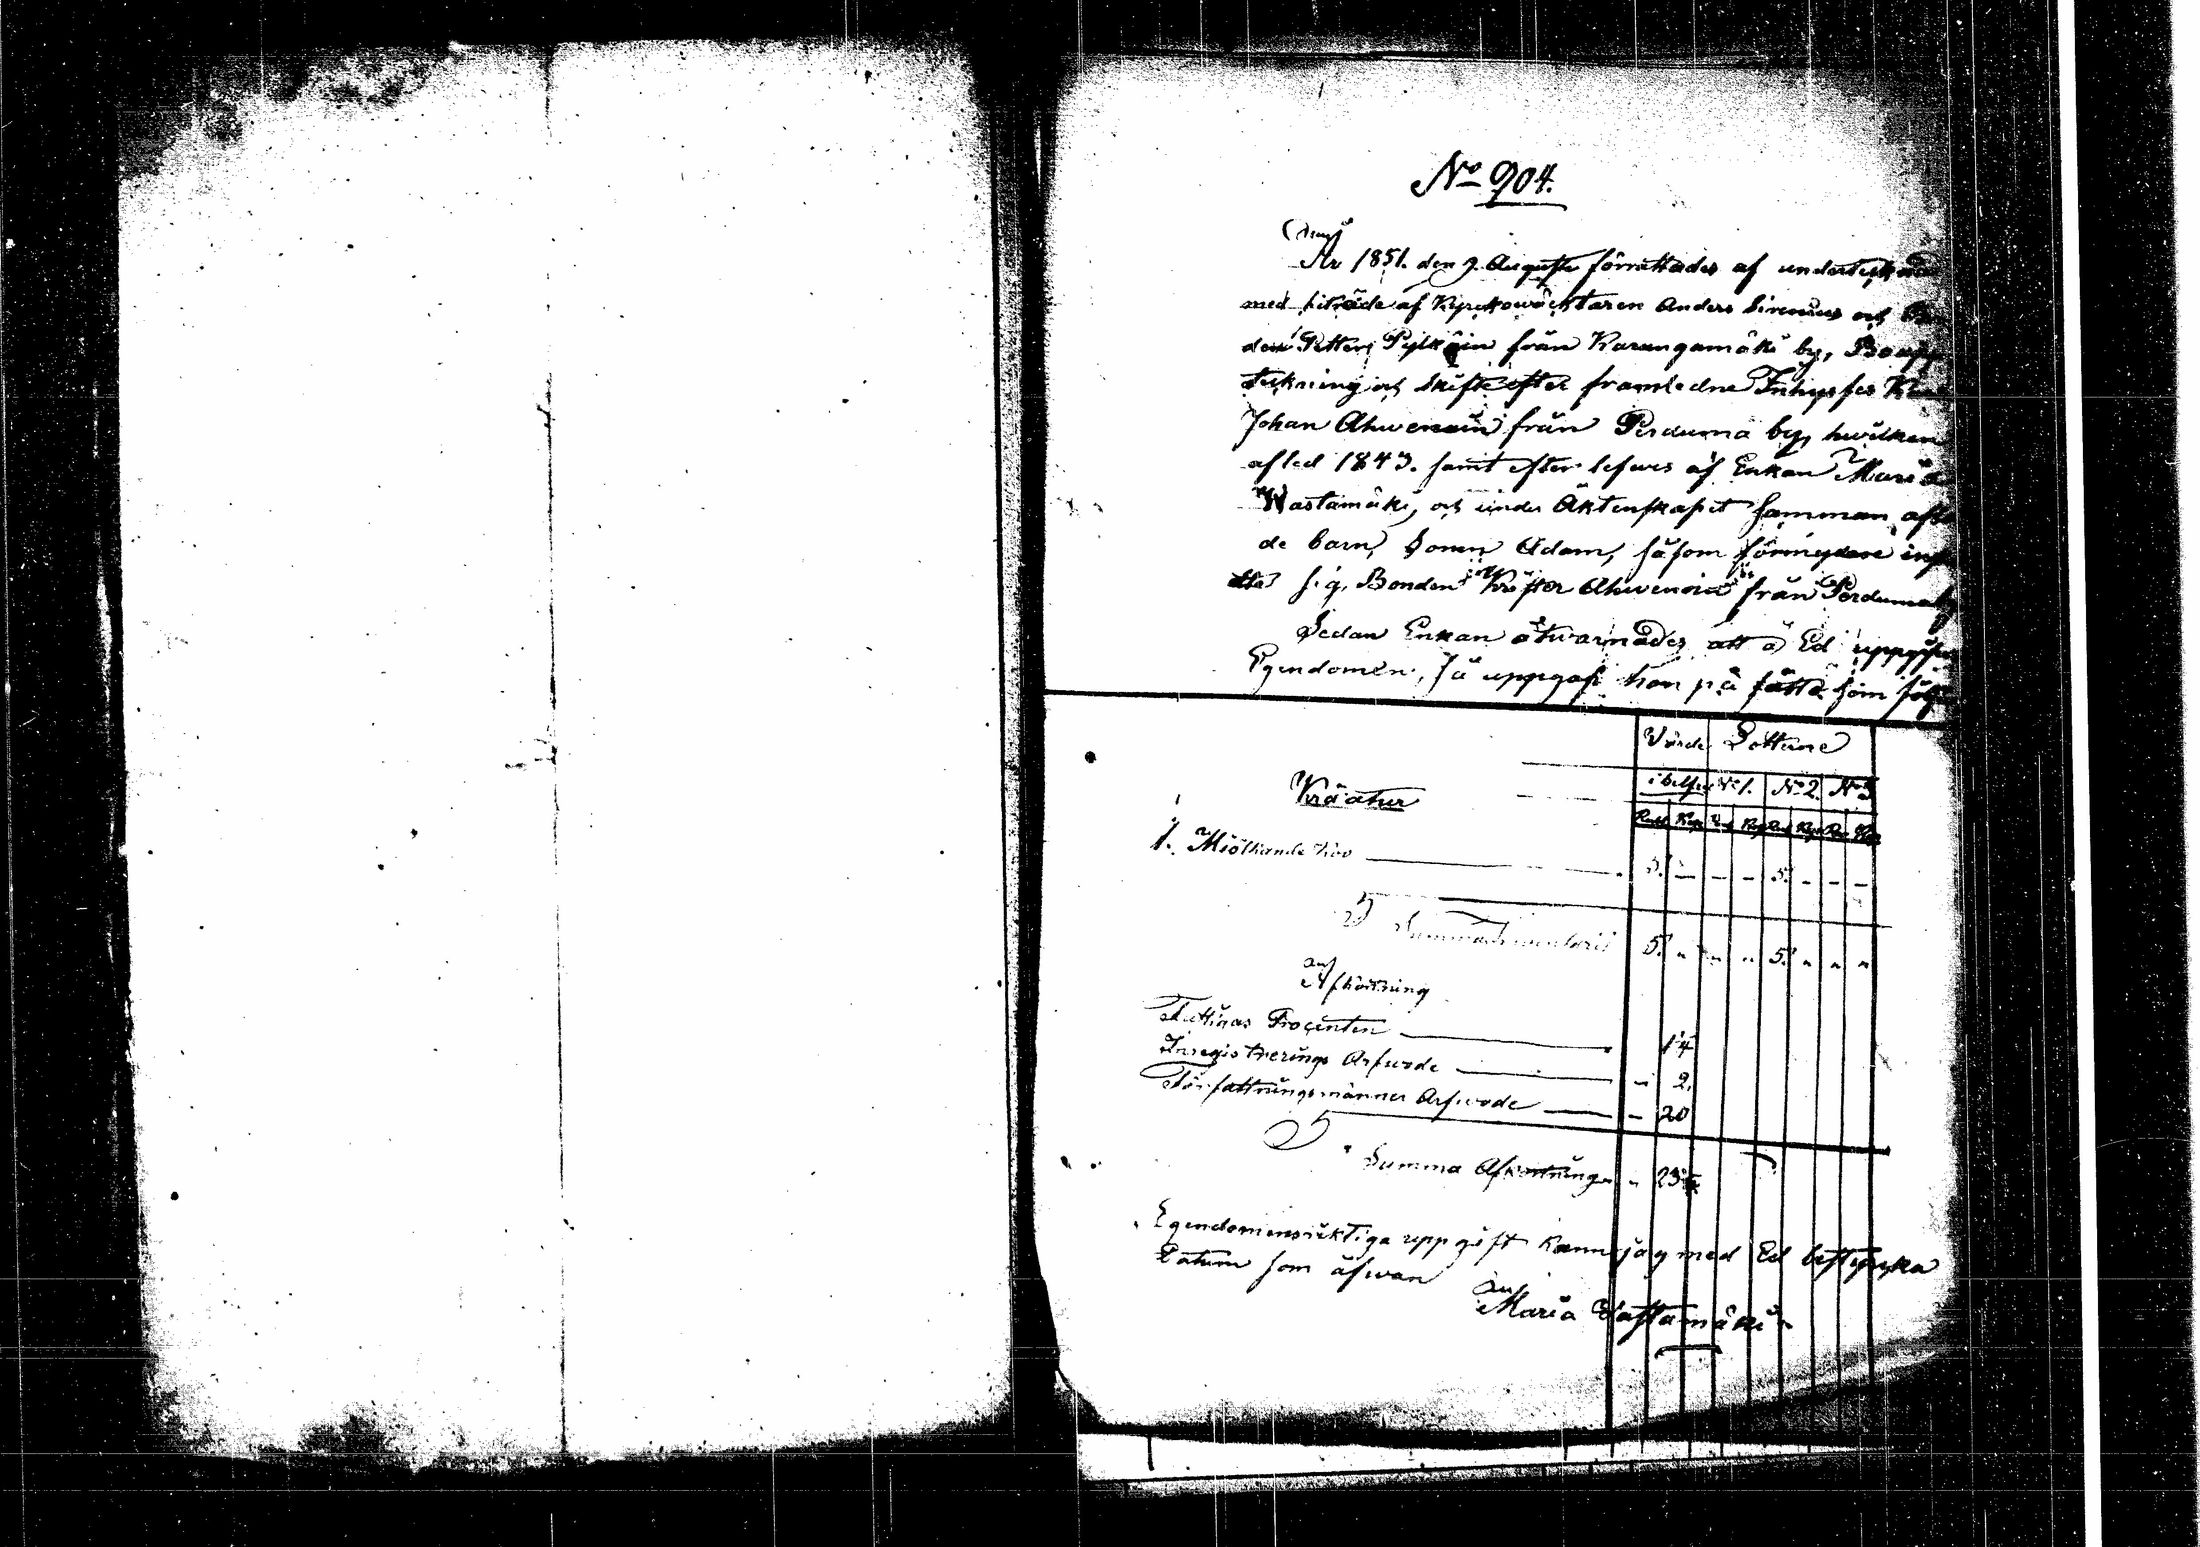 No 904.
År 1851. den 9. Augusti förrättades af undertecknad
med biträde af Kyrkowäktaren Anders Sirenius och
den Petter Pylkäin från Karangamäki by, Boupp
tekning och Skifte efter framledne Inhyses Kar
Johan Ahwenain från Perduma by, hwilken
afled 1843. samt efterlefwes af Enkan Maria
Wastamäki, och under Äktenskapet samman afla
de barn, Sonen Adam, såsom förmyndare inf
sig, Bonden Krister Ahwenain från Perduma by
Sedan Enkan åtwarnades att å Ed uppgifwa
Egendomen, så uppgaf hon på sätt som följ
Wärde Lotterne
i Silfwer No 1. No 2. No 3
Kräatur
Rub Kop Rub Kop Rub Kop Rub Kop
1. Miölkande Koo — 5. — — — 5. — — —
Summa Inventarii 5. " " " 5. " " "
Afkortning
Fattigas Procenten — 1¼
Inregistrerings Arfwode — " 2.
Författningsmänner Arfwode — " 20
Summa Afkortning " 23¼
Egendomens riktiga uppgift kan jag med Ed bestyrka
Datum som ofwan
Maria Wastamäki